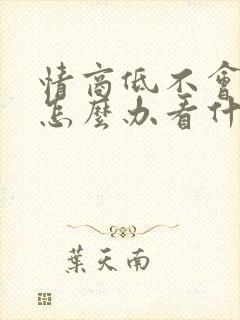 情高低不會
怎麼办看什
葉天南